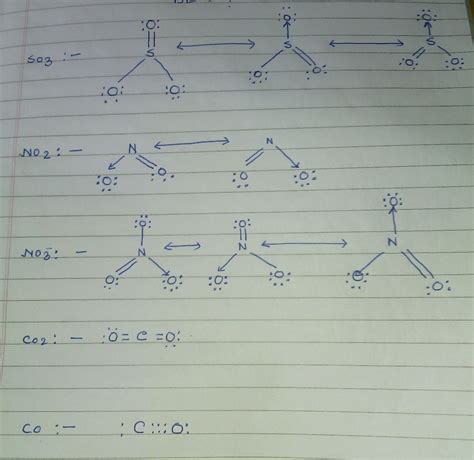 SO3 :-
:O: S :O: :O: ⟷ :O: S :O: O: ⟷ :O: S O: O:
NO2 :- N :O: O: ⟷ N :O :O:
NO3⁻ :- :O: N :O: O: ⟷ :O: N :O: O: ⟷ :O: N O: O:
CO2 :- :O=C=O:
CO :- :C:::O: